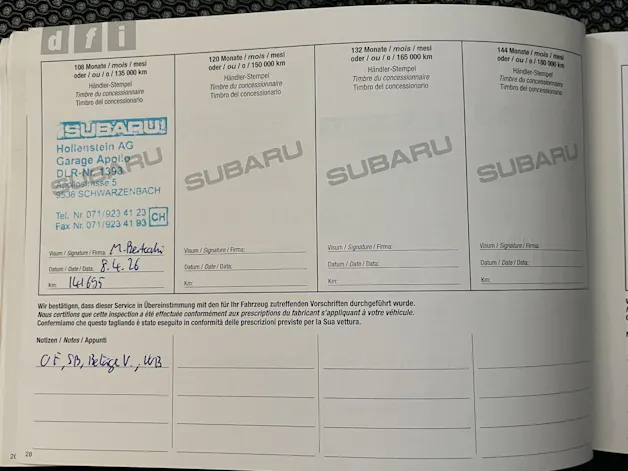 dfi
108 Monate / mois / mesi
oder / ou / o / 135 000 km
Händler-Stempel
Timbre du concessionnaire
Timbro del concessionario
SUBARU
Hollenstein AG
Garage Apollo
DLR-Nr. 1393
Apollostrasse 5
9536 SCHWARZENBACH
Tel. Nr 071/923 41 23
Fax Nr. 071/923 41 93 CH
SUBARU
Visum / Signature / Firma:
Datum / Date / Data: 8.4.26
Km: 141655
120 Monate / mois / mesi
oder / ou / o / 150 000 km
Händler-Stempel
Timbre du concessionnaire
Timbro del concessionario
SUBARU
Visum / Signature / Firma:
Datum / Date / Data:
Km:
132 Monate / mois / mesi
oder / ou / o / 165 000 km
Händler-Stempel
Timbre du concessionnaire
Timbro del concessionario
SUBARU
Visum / Signature / Firma:
Datum / Date / Data:
Km:
144 Monate / mois / mesi
oder / ou / o / 180 000 km
Händler-Stempel
Timbre du concessionnaire
Timbro del concessionario
SUBARU
Visum / Signature / Firma:
Datum / Date / Data:
Km:
Wir bestätigen, dass dieser Service in Übereinstimmung mit den für Ihr Fahrzeug zutreffenden Vorschriften durchgeführt wurde.
Nous certifions que cette inspection a été effectuée conformément aux prescriptions du fabricant s'appliquant à votre véhicule.
Confermiamo che questo tagliando è stato eseguito in conformità delle prescrizioni previste per la Sua vettura.
Notizen / Notes / Appunti
OF, SB, Beläge V., WB
28